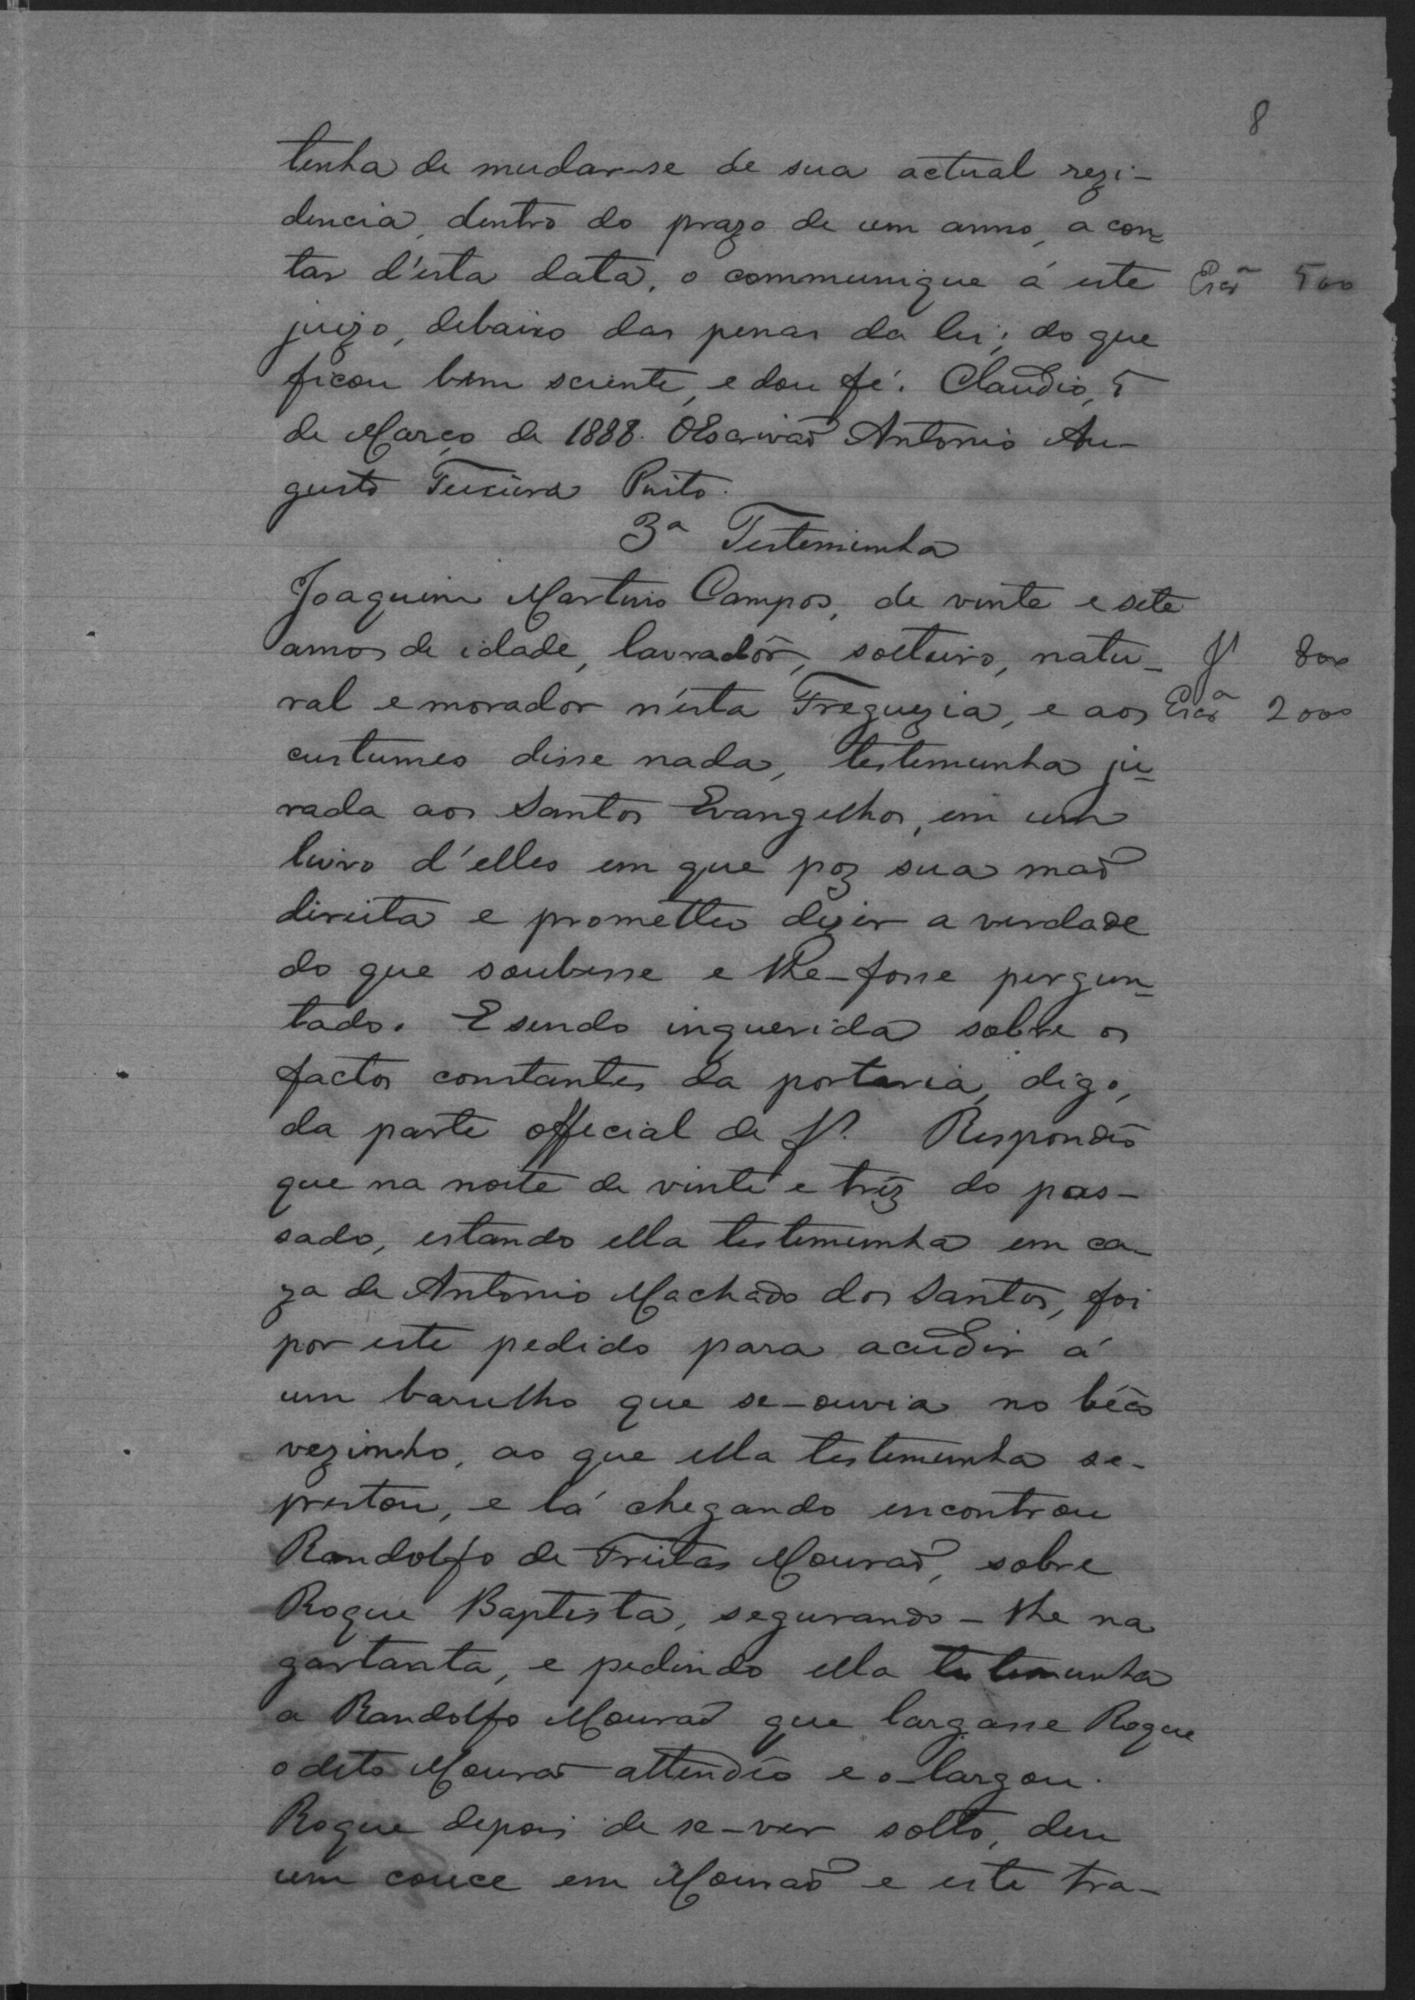 8
tenha de mudar-se de sua actual rezi-
dencia, dentro do prazo de um anno, a con-
tar d'esta data, o communique á este
Escr.ão 500
juizo, debaixo das penas da lei; do que
ficou bem sciente, e dou fé. Claudio, 5
de Março de 1888. O Escrivaõ Antonio Au-
gusto Teixeira Pinto.
3ª Testemunha
Joaquim Martins Campos, de vinte e sete
annos de idade, lavrador, solteiro, natu-
J. 800
ral e morador n'esta Freguezia, e aos
Escr.ão 2000
custumes disse nada, testemunha ju-
rada aos Santos Evangelhos, em um
livro d'elles em que poz sua maõ
direita e prometteo dizer a verdade
do que soubesse e lhe-fosse pergun-
tado. E sendo inquerida sobre os
factos constantes da portaria, digo,
da parte official de f. Respondeo
que na noite de vinte e trêz do pas-
sado, estando ella testemunha em ca-
za de Antonio Machado dos Santos, foi
por este pedido para acudir á
um barulho que se-ouvia no bêco
vezinho, ao que ella testemunha se-
prestou, e lá chegando encontrou
Randolfo de Freitas Mouraõ, sobre
Roque Baptista, segurando-lhe na
gartanta, e pedindo ella testemunha
a Randolfo Mouraõ que largasse Roque
o dito Mouraõ attendeo e o-largou.
Roque depois de se-ver solto, deu
um couce em Mouraõ e este tra-